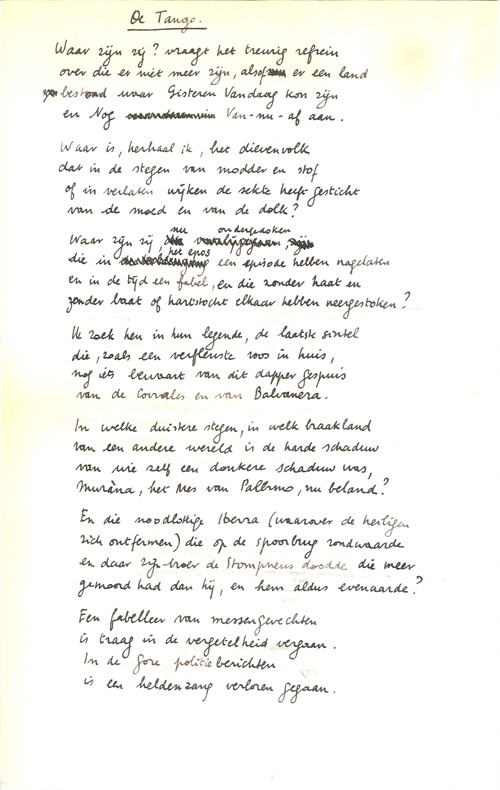 De Tango.
Waar zijn zij? vraagt het treurig refrein
over die er niet meer zijn, alsof er een land
bestond waar Gisteren Vandaag kon zijn
en Nog Van-nu-af aan.
Waar is, herhaal ik, het dievenvolk
dat in de stegen van modder en stof
of in verlaten wijken de sekte heeft gesticht
van de moed en van de dolk?
Waar zijn zij nu ondergedoken
die in het epos een episode hebben nagelaten
en in de tijd een fabel, en die zonder haat en
zonder baat of hartstocht elkaar hebben neergestoken?
Ik zoek hen in hun legende, de laatste sintel
die, zoals een verflenste roos in huis,
nog iets bewaart van dit dapper gespuis
van de Corrales en van Balvanera.
In welke duistere stegen, in welk braakland
van een andere wereld is de harde schaduw
van wie zelf een donkere schaduw was,
Murãna, het Mes van Palermo, nu beland?
En die noodlottige Iberra (waarover de heiligen
zich ontfermen) die op de spoorbrug rondwaarde
en daar zijn broer de Stompneus doodde die meer
gemoord had dan hij, en hem aldus evenaarde?
Een fabelleer van messengevechten
is traag in de vergetelheid vergaan.
In de gore politieberichten
is een heldenzang verloren gegaan.